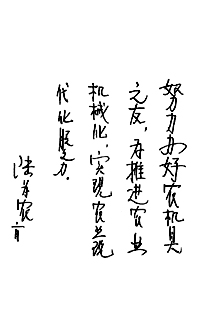 努力办好农机具
之友，为推进农业
机械化，实现农业现
代化服务。